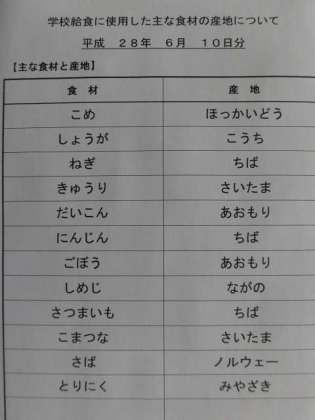 学校給食に使用した主な食材の産地について
平成 28年 6月 10日分
【主な食材と産地】
食 材 産 地
こめ ほっかいどう
しょうが こうち
ねぎ ちば
きゅうり さいたま
だいこん あおもり
にんじん ちば
ごぼう あおもり
しめじ ながの
さつまいも ちば
こまつな さいたま
さば ノルウェー
とりにく みやざき